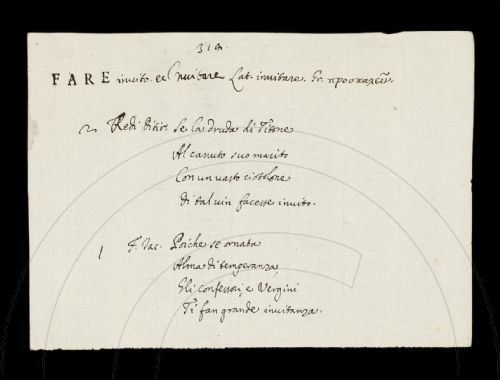 314.
FARE invito. ec Invitare Lat. invitare. Gr. προσκαλεῖν.
2 Redi Ditir. Se la druda di Titone
Al canuto suo marito
Con un vasto ciotolone
Di tal vin facesse invito.
1 F. Iac. Poiche se ornata
Alma di temperanza,
Gli confessori, e Vergini
Ti fan grande invitanza.